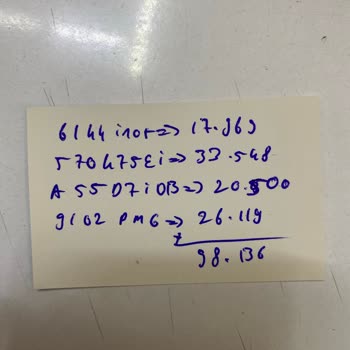 6144 inot=> 17.969
570475Ei=> 33.548
A 55D7iOB=> 20.500
9102 PMG=> 26.119
+
98.136